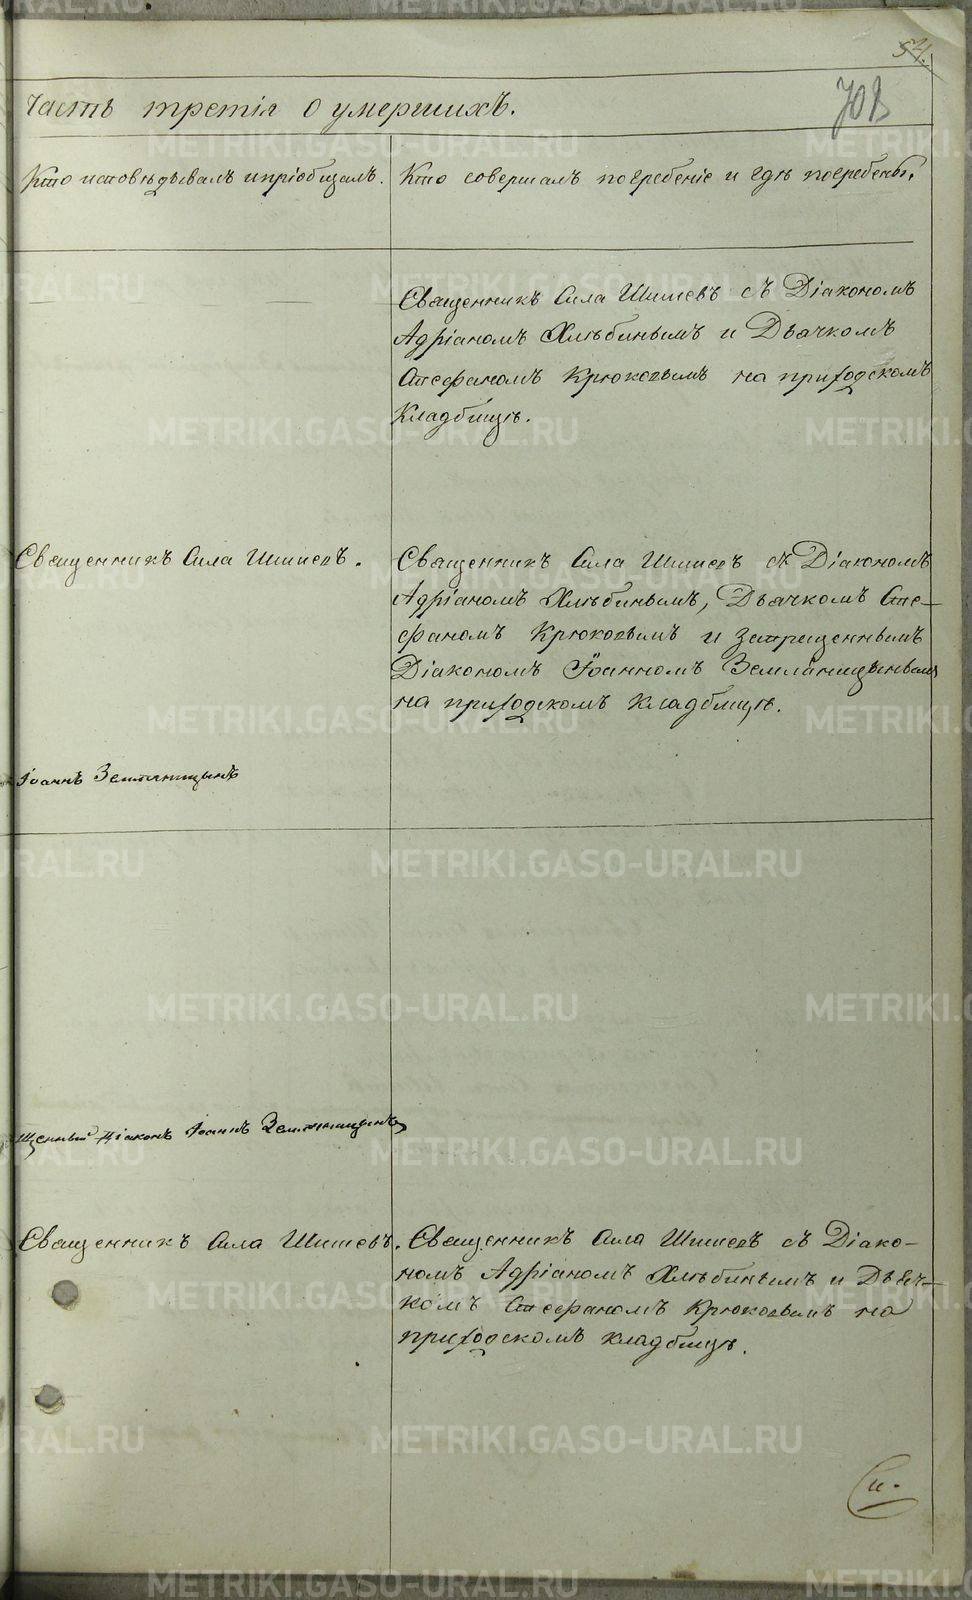 54.
708
Часть третія о умершихъ.
Кто исповѣдывалъ и пріобщалъ.
Кто совершалъ погребеніе и гдѣ погребены.
Священникъ Сила Шишевъ съ Діакономъ
Адріаномъ Хлѣбинымъ и Дьячкомъ
Стефаномъ Крюковымъ на приходскомъ
кладбищѣ.
Священникъ Сила Шишевъ.
Священникъ Сила Шишевъ съ Діакономъ
Адріаномъ Хлѣбинымъ, Дьячкомъ Сте-
фаномъ Крюковымъ и запрещеннымъ
Діакономъ Іоанномъ Земляницынымъ
на приходскомъ кладбищѣ.
Іоаннъ Земляницынъ
щенный Діаконъ Іоаннъ Земляницынъ
Священникъ Сила Шишевъ.
Священникъ Сила Шишевъ съ Діако-
номъ Адріаномъ Хлѣбинымъ и Дьяч-
комъ Стефаномъ Крюковымъ на
приходскомъ кладбищѣ.
и.
METRIKI.GASO-URAL.RU